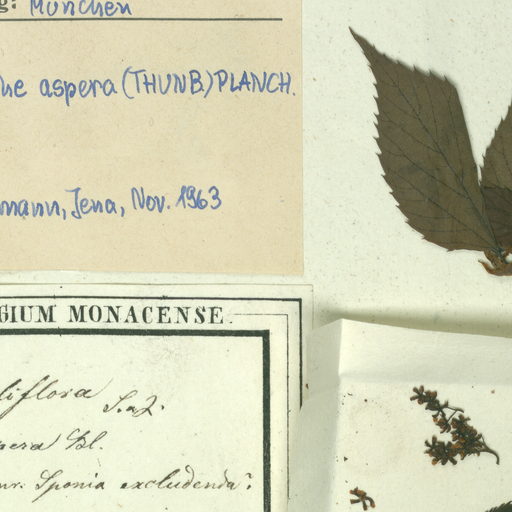 g: München
he aspera (THUNB.) PLANCH.
mann, Jena, Nov. 1963
GIUM MONACENSE.
liflora S. & Z.
pera Bl.
Sponia excludenda?